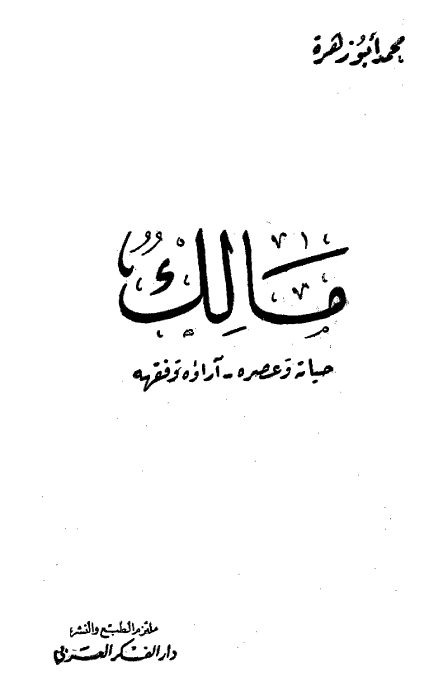 محمد أبو زهرة
مَالِكٌ
حياته وعصره - آراؤه وفقهه
ملتزم الطبع والنشر
دار الفكر العربي